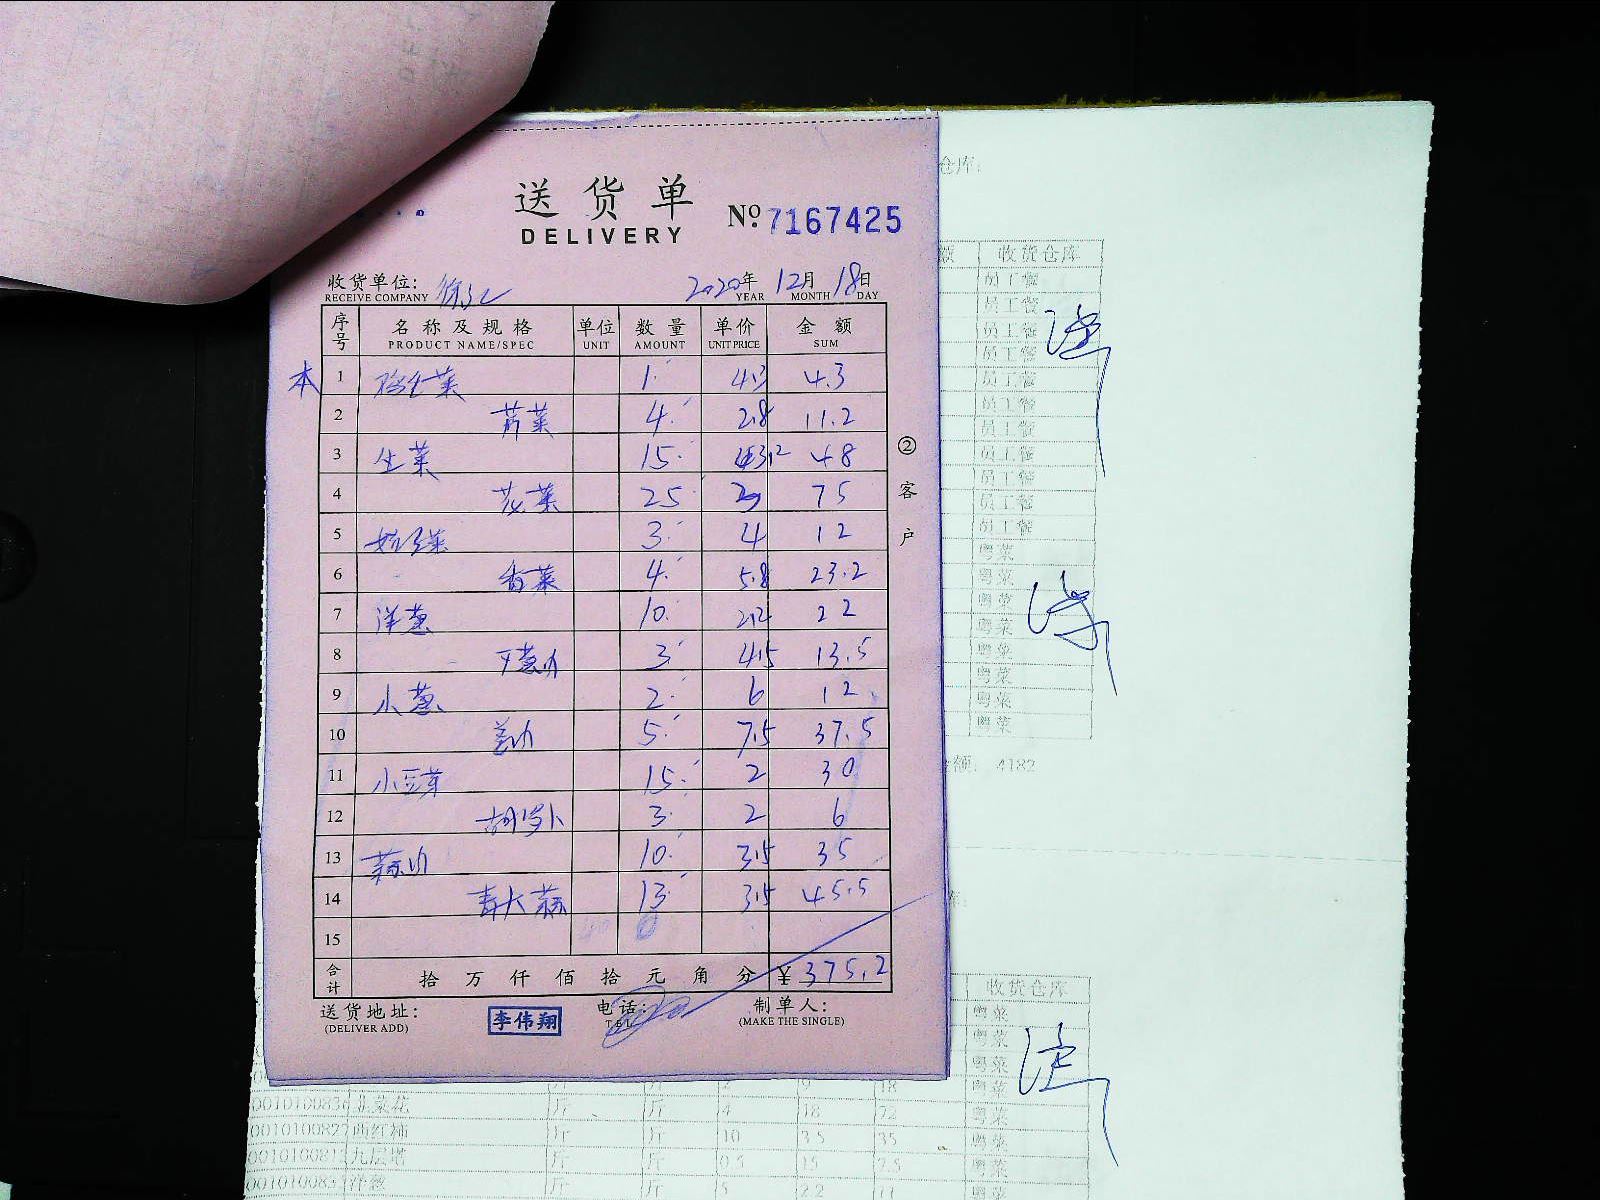 送货单
DELIVERY
№ 7167425
收货单位:
RECEIVE COMPANY
2020年 12月 18日
YEAR MONTH DAY
序号 名称及规格 单位 数量 单价 金额
PRODUCT NAME/SPEC UNIT AMOUNT UNIT PRICE SUM
本 1 菜 1 4.3 4.3
2 芹菜 4 2.8 11.2
3 生菜 15 3.2 48
4 花菜 25 3 75
5 3 4 12
6 香菜 4 5.8 23.2
7 洋葱 10 2.2 22
8 3 4.5 13.5
9 小葱 2 6 12
10 5 7.5 37.5
11 小豆芽 15 2 30
12 胡萝卜 3 2 6
13 10 3.5 35
14 青大蒜 13 3.5 45.5
15
合计 拾 万 仟 佰 拾 元 角 分 ¥ 375.2
送货地址:
(DELIVER ADD)
李伟翔
电话:
TEL
制单人:
(MAKE THE SINGLE)
② 客户
仓库:
额 收货仓库
员工餐
员工餐
员工餐
员工餐
员工餐
员工餐
员工餐
员工餐
员工餐
员工餐
员工餐
粤菜
粤菜
粤菜
粤菜
粤菜
粤菜
粤菜
粤菜
金额: 4182
库:
收货仓库
粤菜
粤菜
粤菜
粤菜
韭菜花 斤 斤 4 18 72 粤菜
西红柿 斤 斤 10 3.5 35 粤菜
九层塔 斤 斤 0.5 15 7.5 粤菜
洋葱 斤 斤 5 2.2 11 粤菜